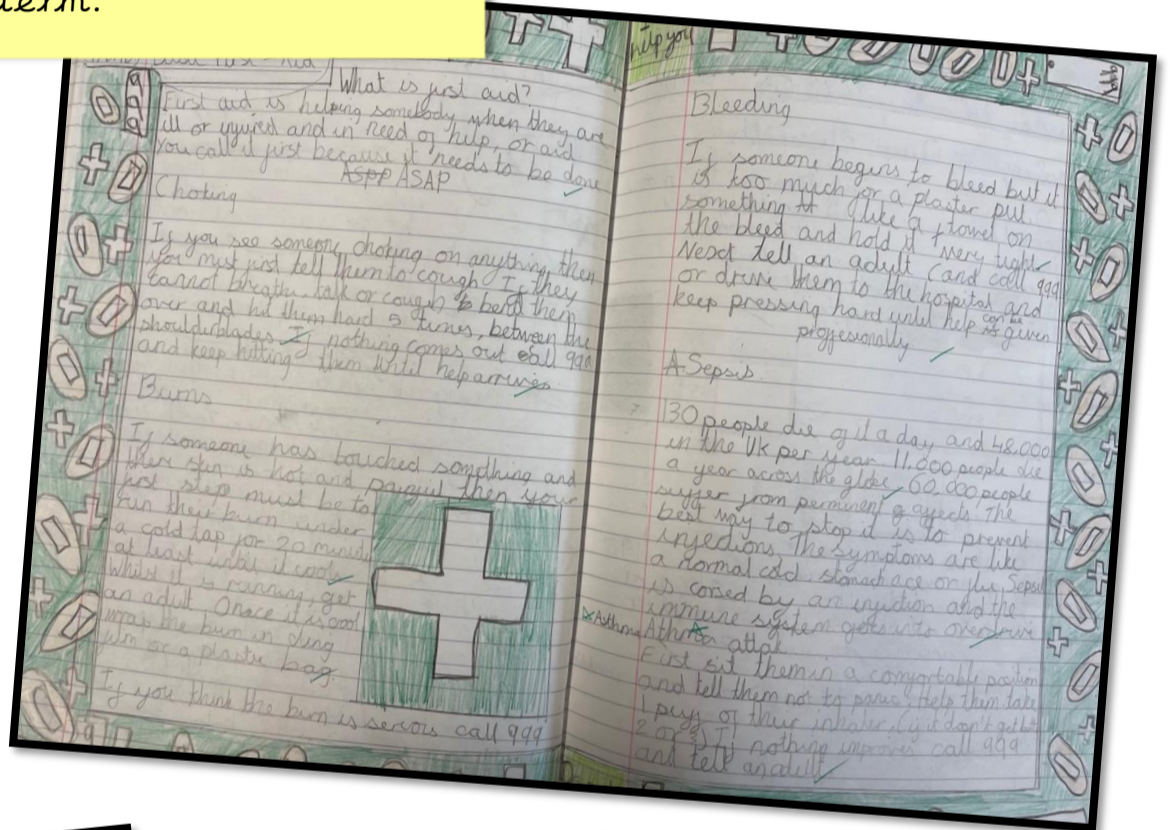 term.
What is first aid?
First aid is helping somebody when they are
ill or injured and in need of help, or aid.
You call it first because it needs to be done
ASPP ASAP
Choking
If you see someone choking on anything then
you must first tell them to cough. If they
cannot breath, talk or cough bend them
over and hit them hard 5 times, between the
shoulderblades. If nothing comes out call 999
and keep hitting them until help arrives
Burns
If someone has touched something and
there skin is hot and painful then your
first step must be to
run their burn under
a cold tap for 20 minuts
at least until it cool
whilst it is running, get
an adult. Onace it is cool
wrap the burn in cling
film or a plastic bag
If you think the burn is serious call 999
999
help you
999
Bleeding
If someone begins to bleed but it
is too much for a plaster put
something (like a towel on
the bleed and hold it very tight
Next tell an adult (and call 999
or drive them to the hospital and
keep pressing hard until help is can be given
proffesionally
A Sepsis
30 people die of it a day and 48,000
in the Uk per year. 11,000 people die
a year across the globe, 60,000 people
suffer from permenent affects. The
best way to stop it is to prevent
infections. The symptoms are like
a normal cold, stomach ace or flu. Sepsis
is corsed by an infection and the
immune system goes into overdrive
Asthma
Asthma attak
First sit them in a comfortable position
and tell them not to panic. Help them take
1 puff of their inhaler (if it don't get
2 or 3) If nothing improves call 999
and tell an adult